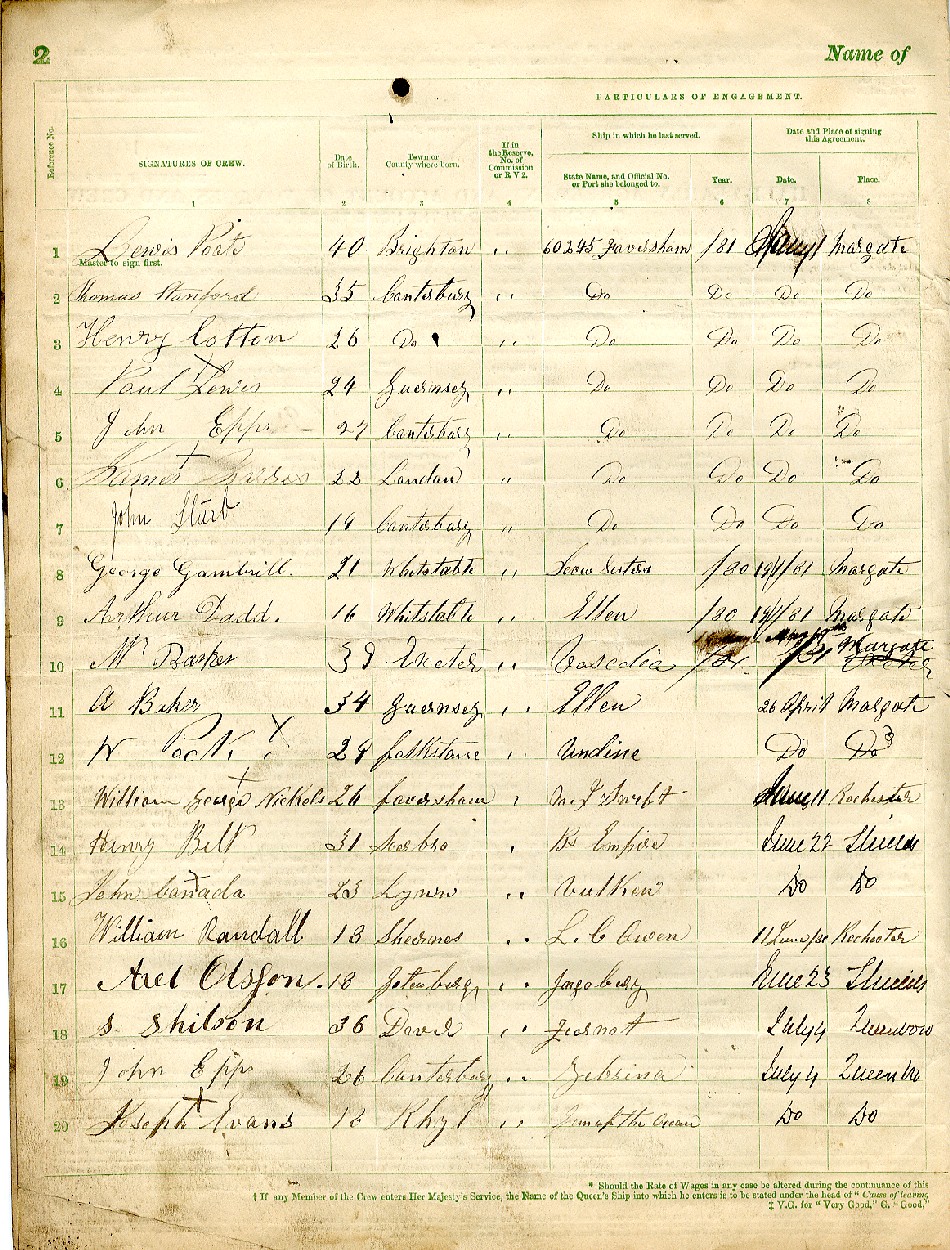 2 Name of
PARTICULARS OF ENGAGEMENT.
Reference No. SIGNATURES OF CREW. Date of Birth. Town or County where born. If in the Reserve, No. of Commission or R V 2. Ship in which he last served. Date and Place of signing this Agreement.
State Name, and Official No. or Port she belonged to. Year. Date. Place.
1 2 3 4 5 6 7 8
1 Lewis 40 Brighton " 60295 Faversham /81 Margate
Master to sign first.
2 Thomas Stanford 35 Canterbury " Do Do Do Do
3 Henry Cotton 26 Do " Do Do Do Do
4 Paul X Lewis 24 Guernsey " Do Do Do Do
5 John Epps 27 Canterbury " Do Do Do Do
6 James X 22 London " Do Do Do Do
7 John Sturb 19 Canterbury " Do Do Do Do
8 George Gambrill. 21 Whitstable " /80 Margate
9 Arthur Dadd. 16 Whitstable " Ellen /80 Margate
10 Barker 38 Exeter " Margate
11 A Baker 34 Guernsey " Ellen 26 April Margate
12 W X 28 Folkstone " Undine Do Do
13 William George X Nichols 26 Faversham June 11 Rochester
14 Henry Belt 31 Empire June 22 Shields
15 John X Canada 23 Lynn " Vulken Do Do
16 William Randall 18 Sheerness " L. C Owen 11 June Rochester
17 Axel Olsson. 18 " June 23 Shields
18 S Shilson 36 Dover " July 4
19 John Epps 26 Canterbury " Zebrina July 4 Queenbro
20 Joseph X Evans 18 Rhyl " Do Do
* Should the Rate of Wages in any case be altered during the continuance of this
† If any Member of the Crew enters Her Majesty's Service, the Name of the Queen's Ship into which he enters is to be stated under the head of "Cause of leaving
‡ V.G. for "Very Good," G. "Good,"